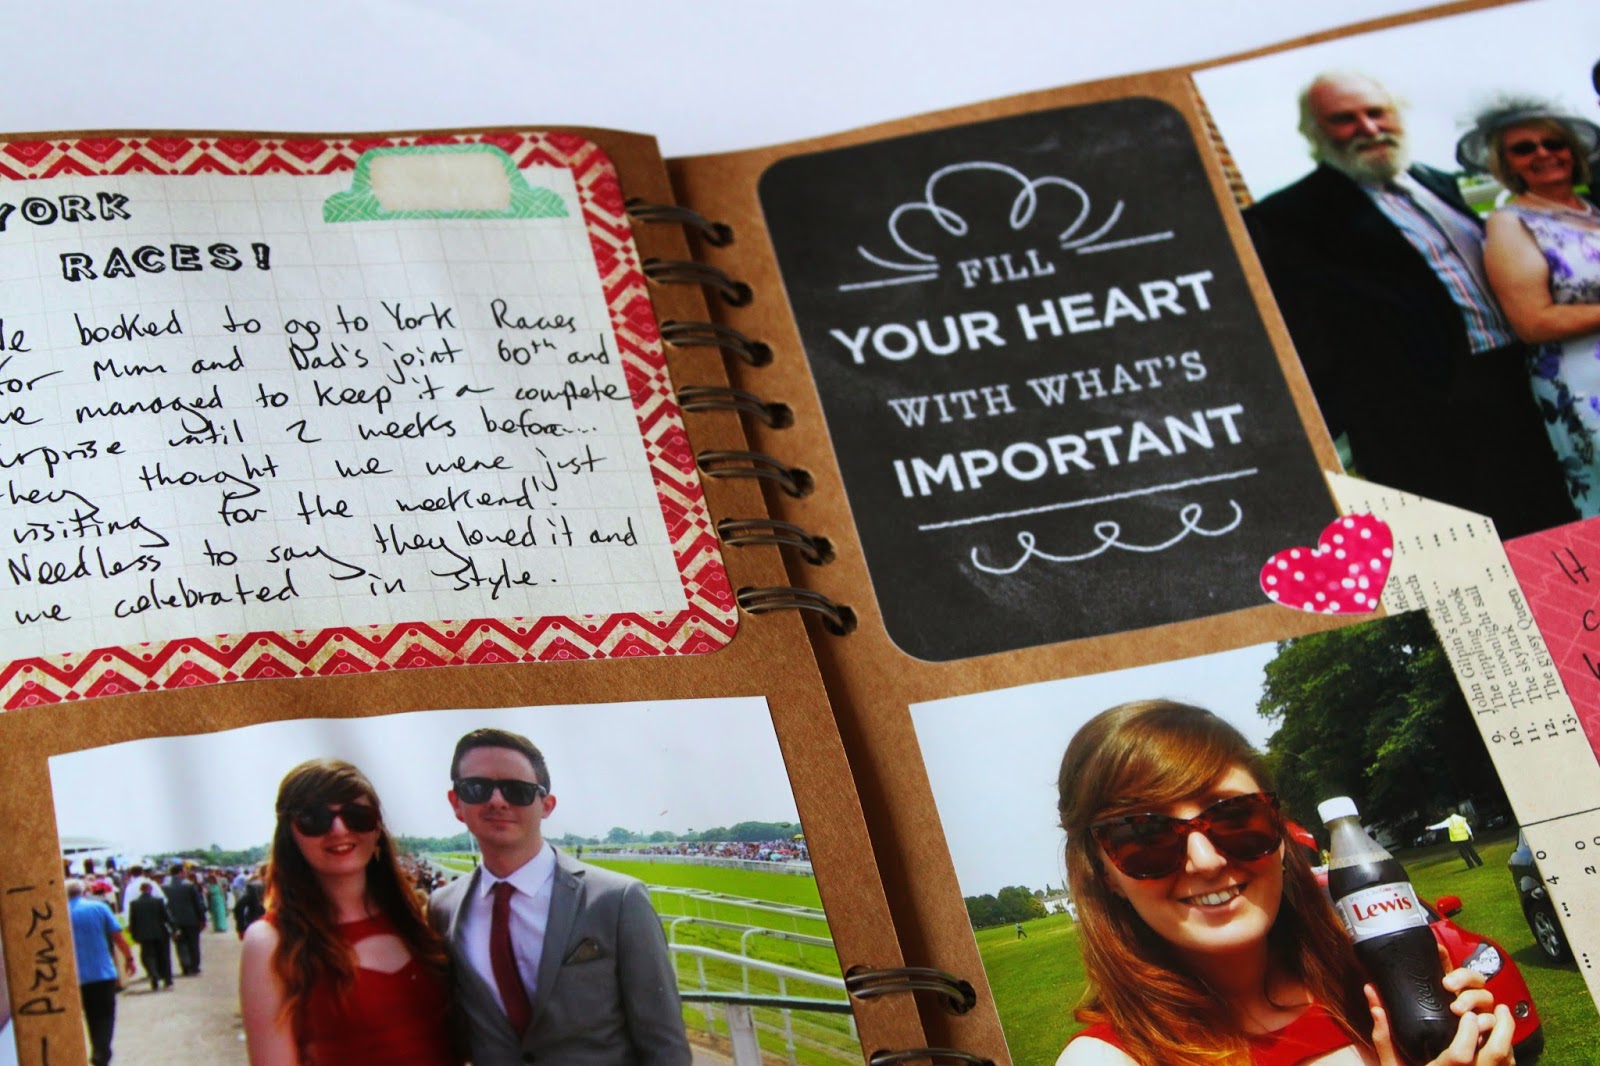 YORK
RACES!
We booked to go to York Races
for Mum and Dad's joint 60th and
we managed to keep it a complete
surprise until 2 weeks before...
they thought we were just
visiting for the weekend!
Needless to say they loved it and
we celebrated in style.
FILL
YOUR HEART
WITH WHAT'S
IMPORTANT
9. John Gilpin's ride...
10. The rippling brook
11. The moonlight sail
12. The skylark
13. The gipsy Queen ...
It
Lewis